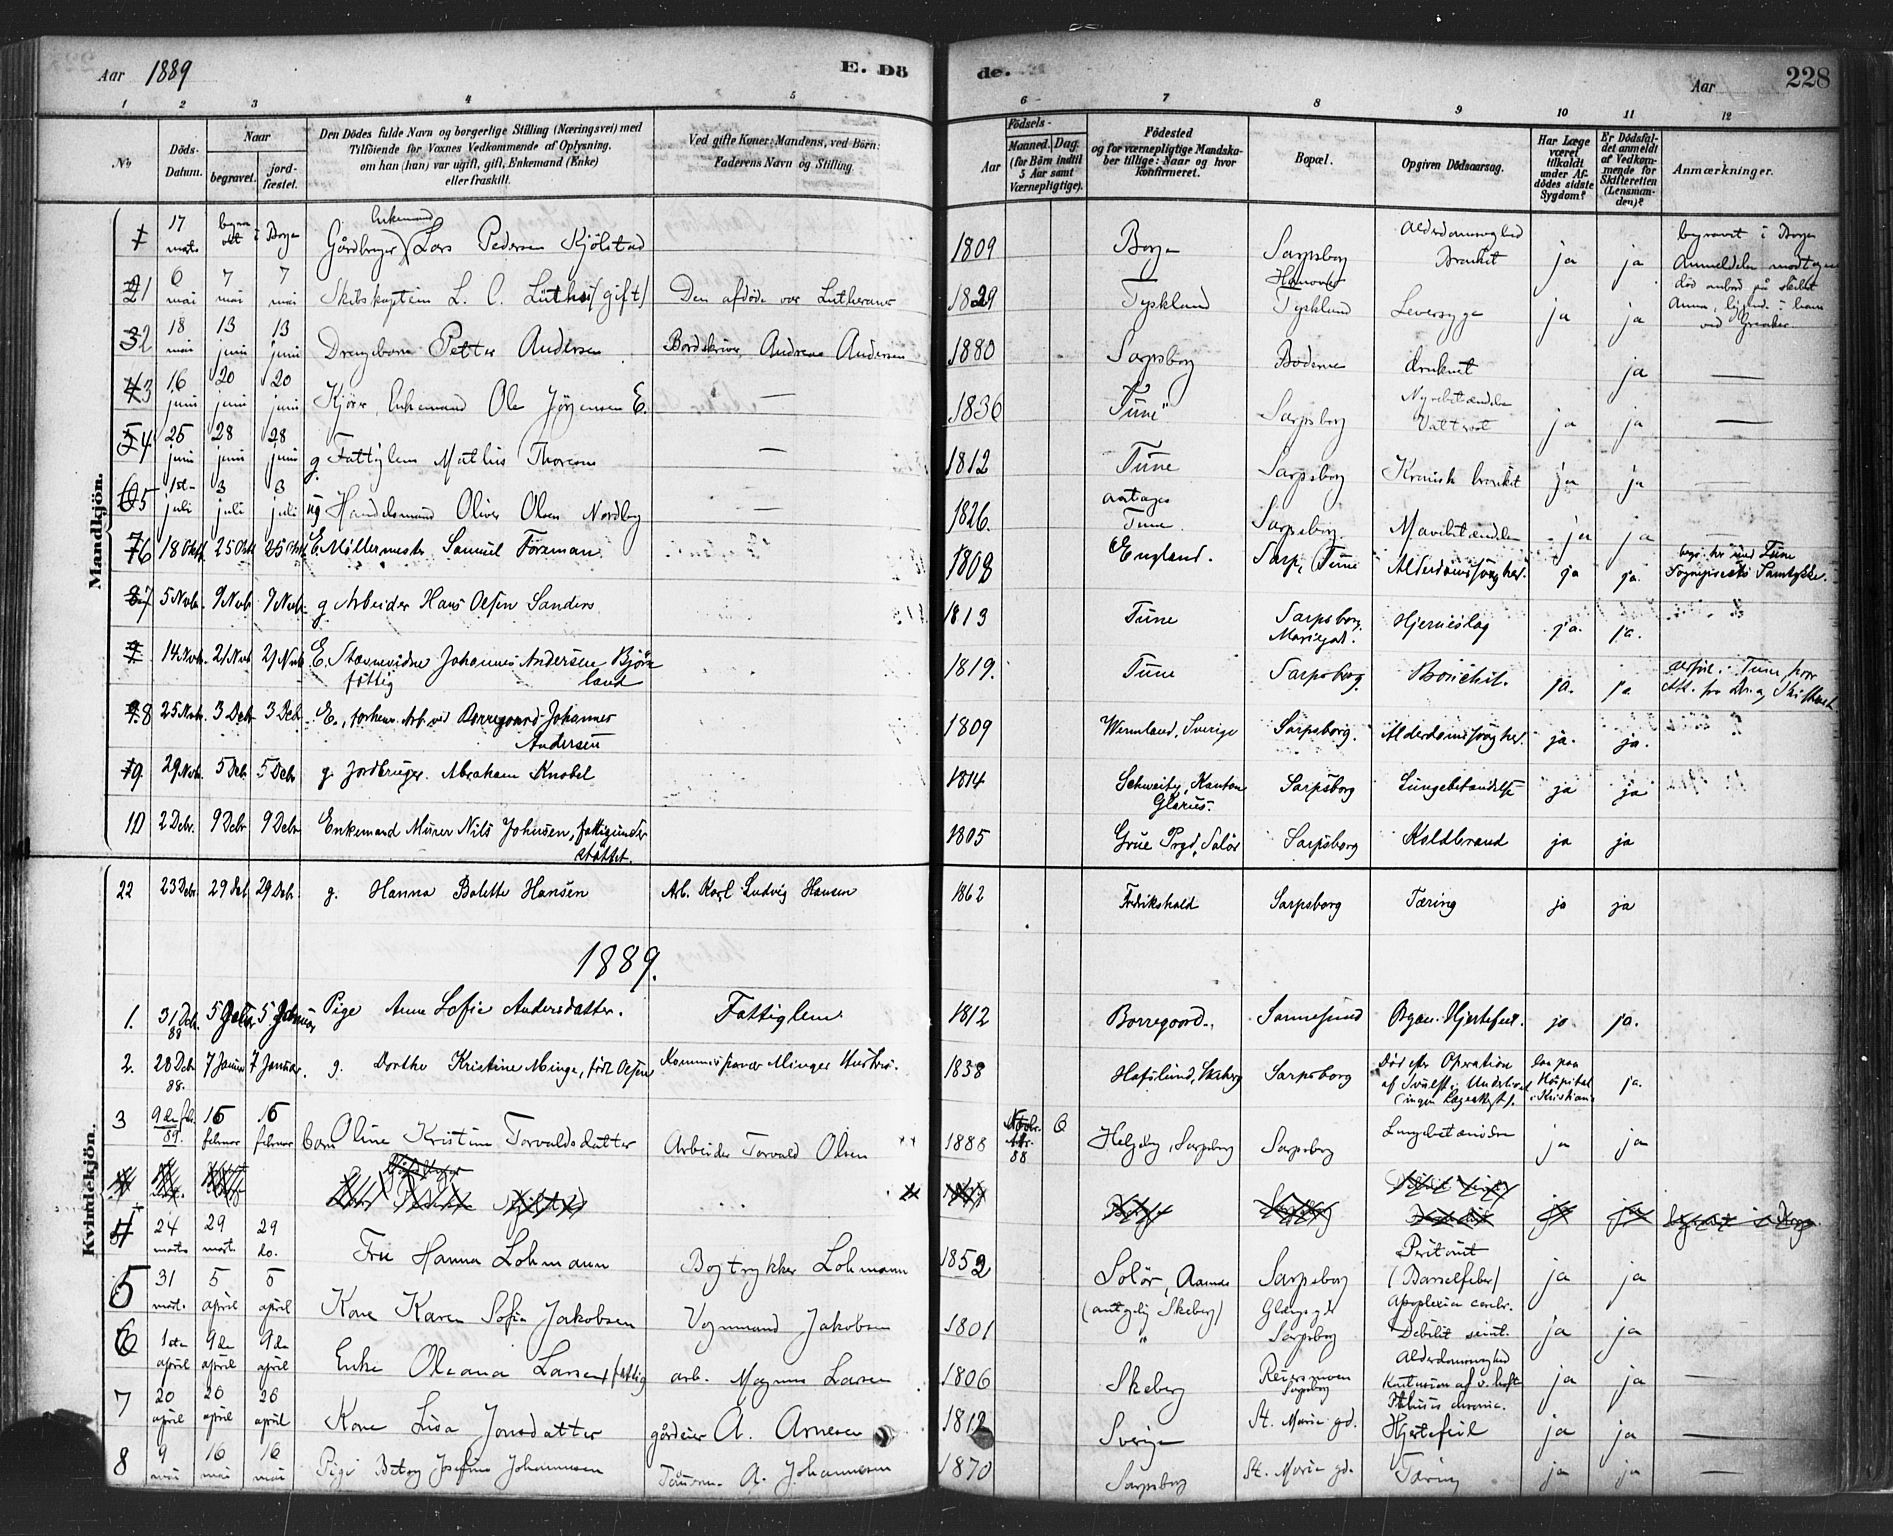 Aar 1889
E. Dö
de.
Aar
228
1 2 3 4 5 6 7 8 9 10 11 12
No
Döds-Datum.
Naar
begravet.
jord-fæstet.
Den Dödes fulde Navn og borgerlige Stilling (Næringsvei) med
Tilföiende for Voxnes Vedkommende af Oplysning,
om han (hun) var ugift, gift, Enkemand (Enke)
eller fraskilt.
Ved gifte Koner: Mandens, ved Börn:
Faderens Navn og Stilling.
Födsels-
Aar
Maaned.
Dag.
(for Börn indtil
5 Aar samt
Værnepligtige).
Födested
og for værnepligtige Mandska-
ber tillige: Naar og hvor
konfirmeret.
Bopæl.
Opgiven Dödsaarsag.
Har Læge
været
tilkaldt
under Af-
dödes sidste
Sygdom?
Er Dödsfal-
det anmeldt
af Vedkom-
mende for
Skifteretten
(Lensman-
den)?
Anmærkninger.
Mandkjön.
1 17 marts i Borge Gårdbruger Enkemand Lars Pedersen Kjölstad 1809 Borge Sarpsborg Alderdomssvaghed ja ja begravet i Borge
1 6 mai 7 mai 7 mai Skibskaptein L. C. (gift) Den afdøde var Lutheraner 1829 Tyskland Hanover Tyskland Leversyge ja ja
2 18 mai 13 juni 13 juni Drengebarn Petter Andersen Bordskriver Andreas Andersen 1880 Sarpsborg druknet ja —
3 16 juni 20 juni 20 juni Kjører, Enkemand Ole Jørgensen E. — 1836 Tune Sarpsborg Nyrebetændelse ja ja —
4 25 juni 28 juni 28 juni g Fattiglem Mathis Thoresen — 1812 Tune Sarpsborg Kronisk bronkit ja ja —
5 1ste juli 3 juli 3 juli ug Handelsmand Oliver Olsen Nordby — 1826. antages Tune. Sarpsborg Mavebetændelse ja ja —
6 18 Okt 25 Okt 25 Okt E. Møllermester Samuel Forsman. 1808 England. Sarp, Tune Alderdomssvaghed. ja ja. Sogneprests Samtykke.
7 5 Novb. 9 Novb 9 Novb. g Arbeider Hans Olsen Sanders 1813 Tune Sarpsborg. Mariegad. Hjerneslag ja. ja.
14 Novb. 21 Novb 21 Novb E. Stævnevidne Johannes Andersen Bjørneland fattig 1819. Tune Sarpsborg. Bronchit. ja. ja
8 25 Novb. 3 Deb 3 Deb. E., forhenv. Arb. ved Borregaard Johannes
Andersen 1809 Wermland, Sverige Sarpsborg. Alderdomssvaghed. ja. ja.
9 29 Novb. 5 Deb. 5 Debr g. Jordbruger. Abraham Knobel 1814 Schweitz, Kanton
Glarus. Sarpsborg Lungebetændelse ja ja
10 2 Debr. 9 Debr 9 Debr Enkemand Murer Nils Johnsen, fattigunder
støttet. 1805 Grue Prgd, Solör Sarpsborg Koldbrand ja ja
Kvindekjön.
22 23 Debr. 29 Deb 29 Debr. g. Hanna Bolette Hansen Arb. Karl Ludvig Hansen 1862 Fredrikshald Sarpsborg Tæring ja ja
1889.
1. 31 Deb. 88 5 Januar Pige Anne Sofie Andersdatter. Fattiglem 1812 Borregaard. Sannesund Hjertefeil. ja ja.
2. 28 Debr 88. 7 Januar 7 Januar. g. Dorthe Kristine Minge, född Olsen Minges Hustru. 1838 Hafslund, Skeberg Sarpsborg Død efter Operation
af Svulst i Underlivet
(ingen Lægeattest). laa paa
Hospital
i Kristiania ja.
3 9de feb. 89. 16 februar 16 februar barn Oline Kristine Torvaldsdatter Arbeider Torvald Olsen 1888 88 6 Helgeby, Sarpsborg Sarpsborg Lungebetændelse ja ja
4 24 marts 29 marts 29 do. Fru Hanna Lohmann Bogtrykker Lohmann 1852 Solör, Aasnes Sarpsborg Peritonit
(Barselfeber) ja ja
5 31 mart. 5 april 5 april Kone Karen Sofie Jakobsen Vognmand Jakobsen 1801 (antagelig Skeberg) Sarpsborg Apoplexia cerebr.
Debilit. senil. ja ja
6 1ste april 9de april 9de april Enke Oleana Larsen fattig arb. Magnus Larsen 1806 Skeberg Sarpsborg Alderdomssvaghed ja ja —
7 20 april 26 april 26 april Kone Lisa Jonsdatter gårdeier A. Arnesen 1812 Sverige St. Marie gd. Hjertefeil ja ja —
8 9 mai 16 mai 16 mai Pige Betsy Josefine Johannesen A. Johannesen 1870 Sarpsborg St. Marie gd. Tæring ja ja —